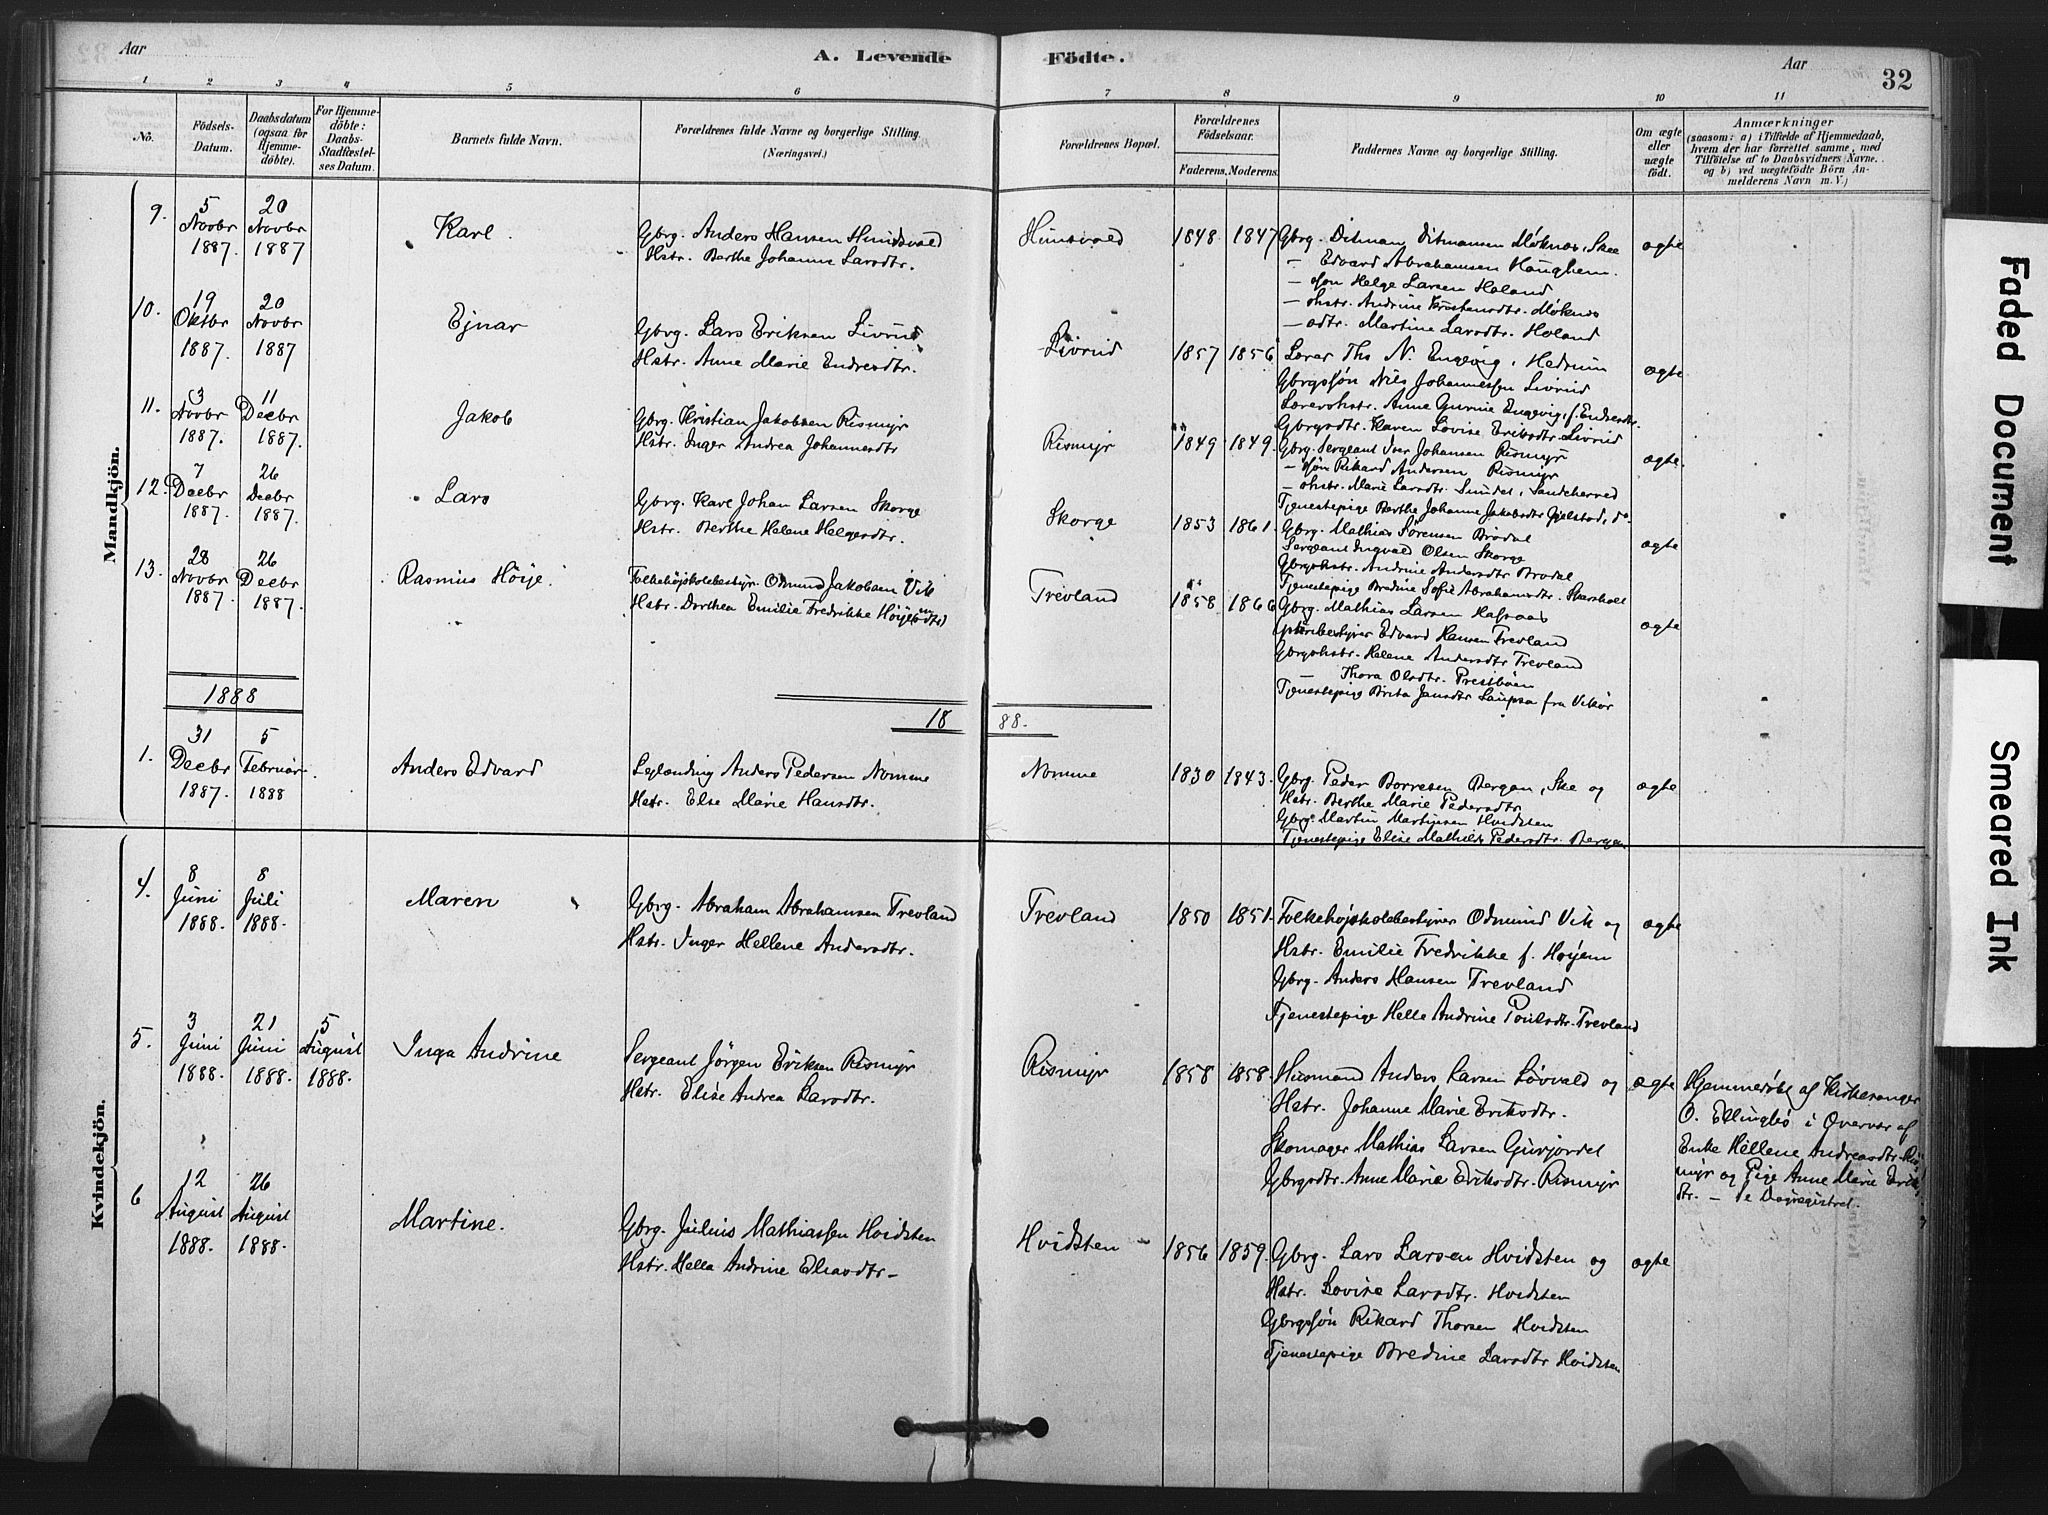 Aar
A. Levende
Födte.
Aar
32
1 2 3 4 5 6 7 8 9 10 11
No.
Födsels-
Datum.
Daabsdatum
(ogsaa for
Hjemme-
döbte).
For Hjemme-
döbte:
Daabs-
Stadfæstel-
ses Datum.
Barnets fulde Navn.
Forældrenes fulde Navne og borgerlige Stilling.
(Næringsvei.)
Forældrenes Bopæl.
Forældrenes
Födselsaar.
Faderens. Moderens.
Faddernes Navne og borgerlige Stilling.
Om ægte
eller
uægte
födt.
Anmærkninger
(saasom: a) i Tilfælde af Hjemmedaab,
hvem der har forrettet samme, med
Tilföielse af to Daabsvidners Navne.
og b) ved uægtefödte Börn An-
melderens Navn m. V.)
Mandkjön.
9.
5
Novbr
1887.
20
Novbr
1887
Karl.
Gbrg. Anders Hansen Hundsvald
Hstr. Berthe Johanne Larsdtr.
Hunsvald
1848. 1847
Gbrg. Ditman Ditmansen Møknes, Ske
— Edvard Abrahamsen Haughem.
— søn Helge Larsen Holand
— hstr. Andrine Kristensdtr. Møknes
— dtr. Martine Larsdtr. Holand
ægte
10.
19
Oktbr
1887.
20
Novbr
1887
Ejnar
Gbrg. Lars Eriksen Livrud
Hstr. Anne Marie Endresdtr.
Livrud
1857 1856
Lærer Ths N. Engevig, Hedrum
Gbrgssøn Nils Johannessen Livrud
Lærershstr. Anne Gurine Engevig, f. Endresdtr.
Gbrgsdtr. Karen Lovise Eriksdtr. Livrud
ægte
11.
3
Novbr
1887.
11
Decbr
1887.
Jakob
Gbrg. Kristian Jakobsen Rismyr
Hstr. Inger Andrea Johannesdtr
Rismyr
1849 1849.
Gbrg. Sergeant Iver Johansen Rismyr
— søn Rikard Andersen Rismyr
— hstr. Marie Larsdtr. Sundet, Sandeherred
Tjenestepige Berthe Johanne Jakobsdtr Gjelstad, do
ægte.
12.
7
Decbr
1887.
26
Decbr
1887.
Lars
Gbrg. Karl Johan Larsen Skorge
Hstr. Berthe Helene Helgesdtr.
Skorge
1853 1861.
Gbrg. Mathias Sørensen Brødal
Sergeant Ingvald Olsen Skorge
Gbrgshstr. Andrine Andersdtr Brodal
Tjenestepige Bredine Sofie Abrahamsdtr. Skarsholt
ægte
13.
28
Novbr
1887.
26
Decbr
1887.
Rasmus Höije.
Folkehøjskolebestyr. Odmund Jakobsen Vik
Hstr. Dorthea Emilie Fredrikke Höijem
Trevland
1858. 1866
Gbrg. Mathias Larsen Hafsaas
Edvard Hansen Trevland
Gbrgshstr. Helene Andersdtr Trevland
— Thora Olsdtr. Prestbøen
Tjenestepige Brita Jansdtr Laupsa fra Vikör
ægte
1888
18 88.
1.
31
Decbr
1887.
5
Februar
1888
Anders Edvard
Leilænding Anders Pedersen Nomme
Hstr. Else Marie Hansdtr.
Nomme
1830 1843.
Gbrg. Peder Borresen Bergan, Ske og
Hstr. Berthe Marie Pedersdtr
Gbrg. Martin Martinsen Hvidsten
Tjenestepige Elise Mathilde Pedersdtr. Bergan
ægte
Kvindekjön.
4.
8
Juni
1888.
8
Juli
1888.
Maren
Gbrg. Abraham Abrahamsen Trevland
Hstr. Inger Hellene Andersdtr.
Trevland
1850 1851.
Folkehøjskolebestyrer Odmund Vik og
Hstr. Emilie Fredrikke f. Höyem
Gbrg. Anders Hansen Trevland
Tjenestepige Helle Andrine Poulsdtr. Trevland
ægte
5.
3
Juni
1888.
21
Juni
1888.
5
August
1888.
Inga Andrine
Sergeant Jörgen Eriksen Rismyr
Hstr. Elise Andrea Larsdtr.
Rismyr
1858 1858.
Husmand Anders Larsen Lövvald og
Hstr. Johanne Marie Eriksdtr.
Skomager Mathias Larsen Gurjordet
Gbrgsdtr. Anne Marie Eriksdtr. Rismyr
ægte
Hjemmedøbt af Kirkesanger
O. Ellingbø i Overvær af
Enke Hellene Andreasdtr. Ris-
myr og Pige Anne Marie Eriks-
dtr. — se Dagregistret.
6
12
August
1888.
26
August
1888.
Martine.
Gbrg. Julius Mathiassen Hvidsten
Hstr. Hella Andrine Eliasdtr.
Hvidsten
1856 1859.
Gbrg. Lars Larsen Hvidsten og
Hstr. Lovise Larsdtr. Hvidsten
Gbrgssøn Rikard Thorsen Hvidsten
Tjenestepige Bredine Larsdtr Hvidsten
ægte
Faded Document
Smeared Ink